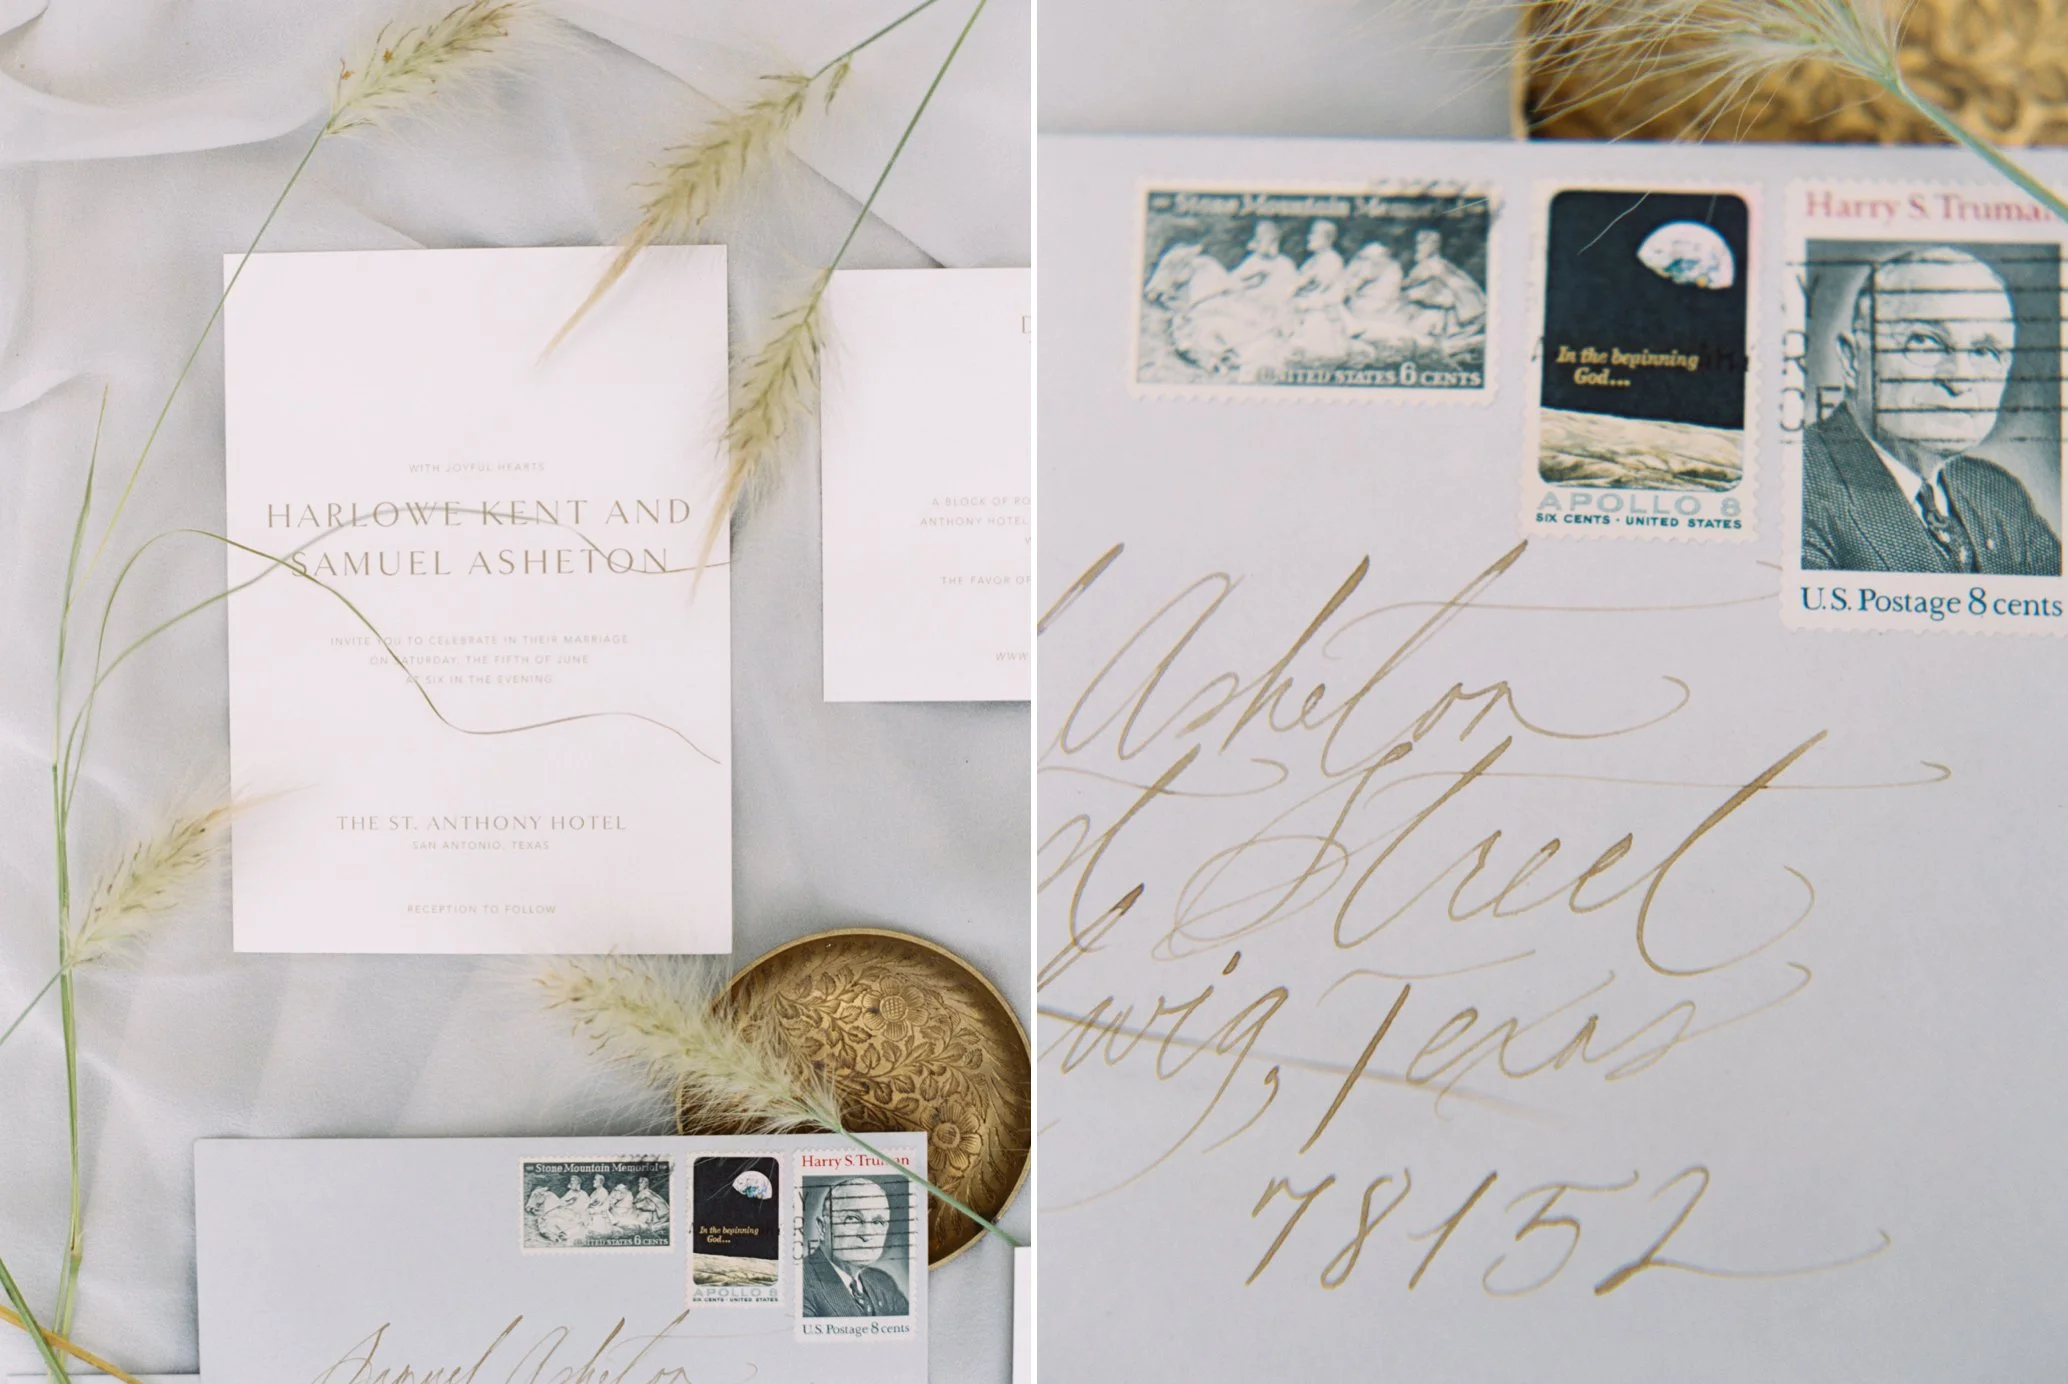 WITH JOYFUL HEARTS
HARLOWE KENT AND
SAMUEL ASHETON
INVITE YOU TO CELEBRATE IN THEIR MARRIAGE
ON SATURDAY, THE FIFTH OF JUNE
AT SIX IN THE EVENING
THE ST. ANTHONY HOTEL
SAN ANTONIO, TEXAS
RECEPTION TO FOLLOW
A BLOCK OF
ANTHONY HOTEL
THE FAVOR OF
WWW
Stone Mountain Memorial
UNITED STATES 6 CENTS
In the beginning
God...
APOLLO 8
SIX CENTS · UNITED STATES
Harry S. Truman
U.S. Postage 8 cents
Samuel Asheton
Stone Mountain Memorial
UNITED STATES 6 CENTS
In the beginning
God...
APOLLO 8
SIX CENTS · UNITED STATES
Harry S. Truman
U.S. Postage 8 cents
Asheton
Street
wig, Texas
78152